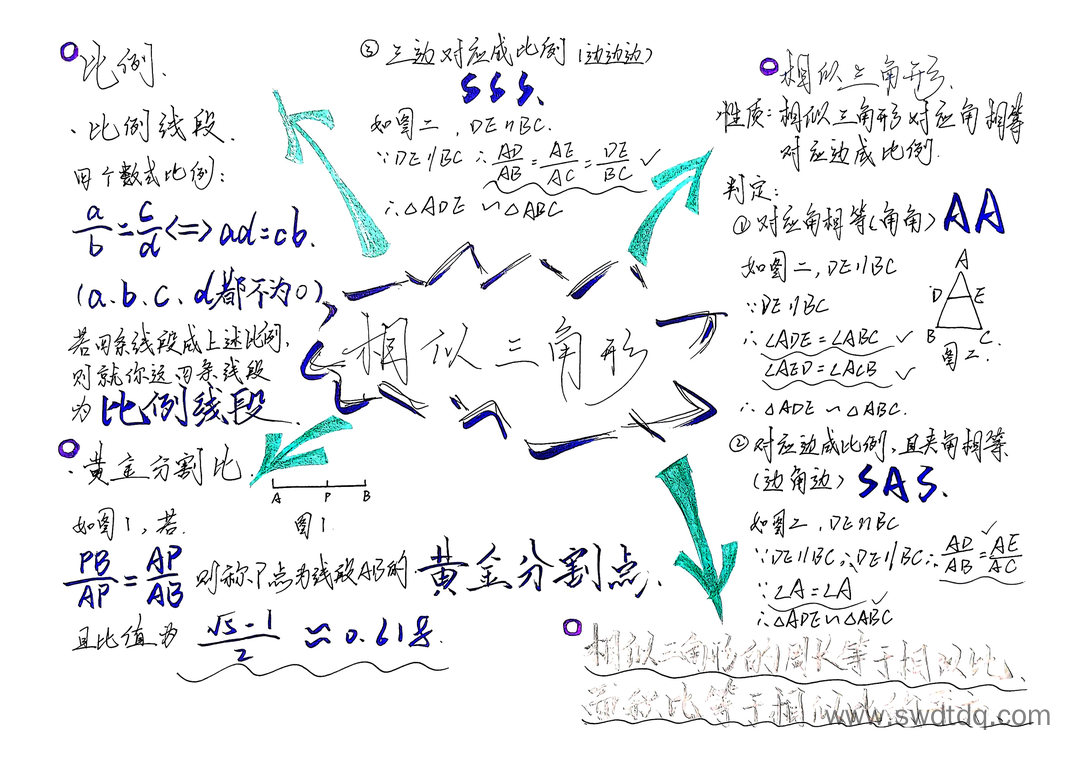 比例.
、比例线段.
四个数式比例:
a/b=c/d<=>ad=cb.
(a、b、c、d都不为0)
若四条线段成上述比例,
则就你这四条线段
为比例线段.
、黄金分割比.
A P B
如图1,若. 图1
PB/AP=AP/AB 则称P点为线段AB的黄金分割点.
且比值为 √5-1/2 ≈0.618.
③三边对应成比例(边边边)
SSS.
如图二,DE∥BC.
∵DE∥BC ∴AD/AB=AE/AC=DE/BC ✓
∴△ADE∽△ABC
相似三角形
相似三角形.
性质:相似三角形对应角相等
对应边成比例.
判定:
①对应角相等(角角)AA
如图二,DE∥BC
∵DE∥BC
∴∠ADE=∠ABC ✓
∠AED=∠ACB ✓
∴△ADE∽△ABC.
A
D E
B C
图二.
②对应边成比例、且夹角相等
(边角边)SAS.
如图二,DE∥BC
∵DE∥BC∴DE∥BC∴AD/AB=AE/AC ✓
∵∠A=∠A ✓
∴△ADE∽△ABC
相似三角形的周长等于相似比、
面积比等于相似
www.swdtdq.com